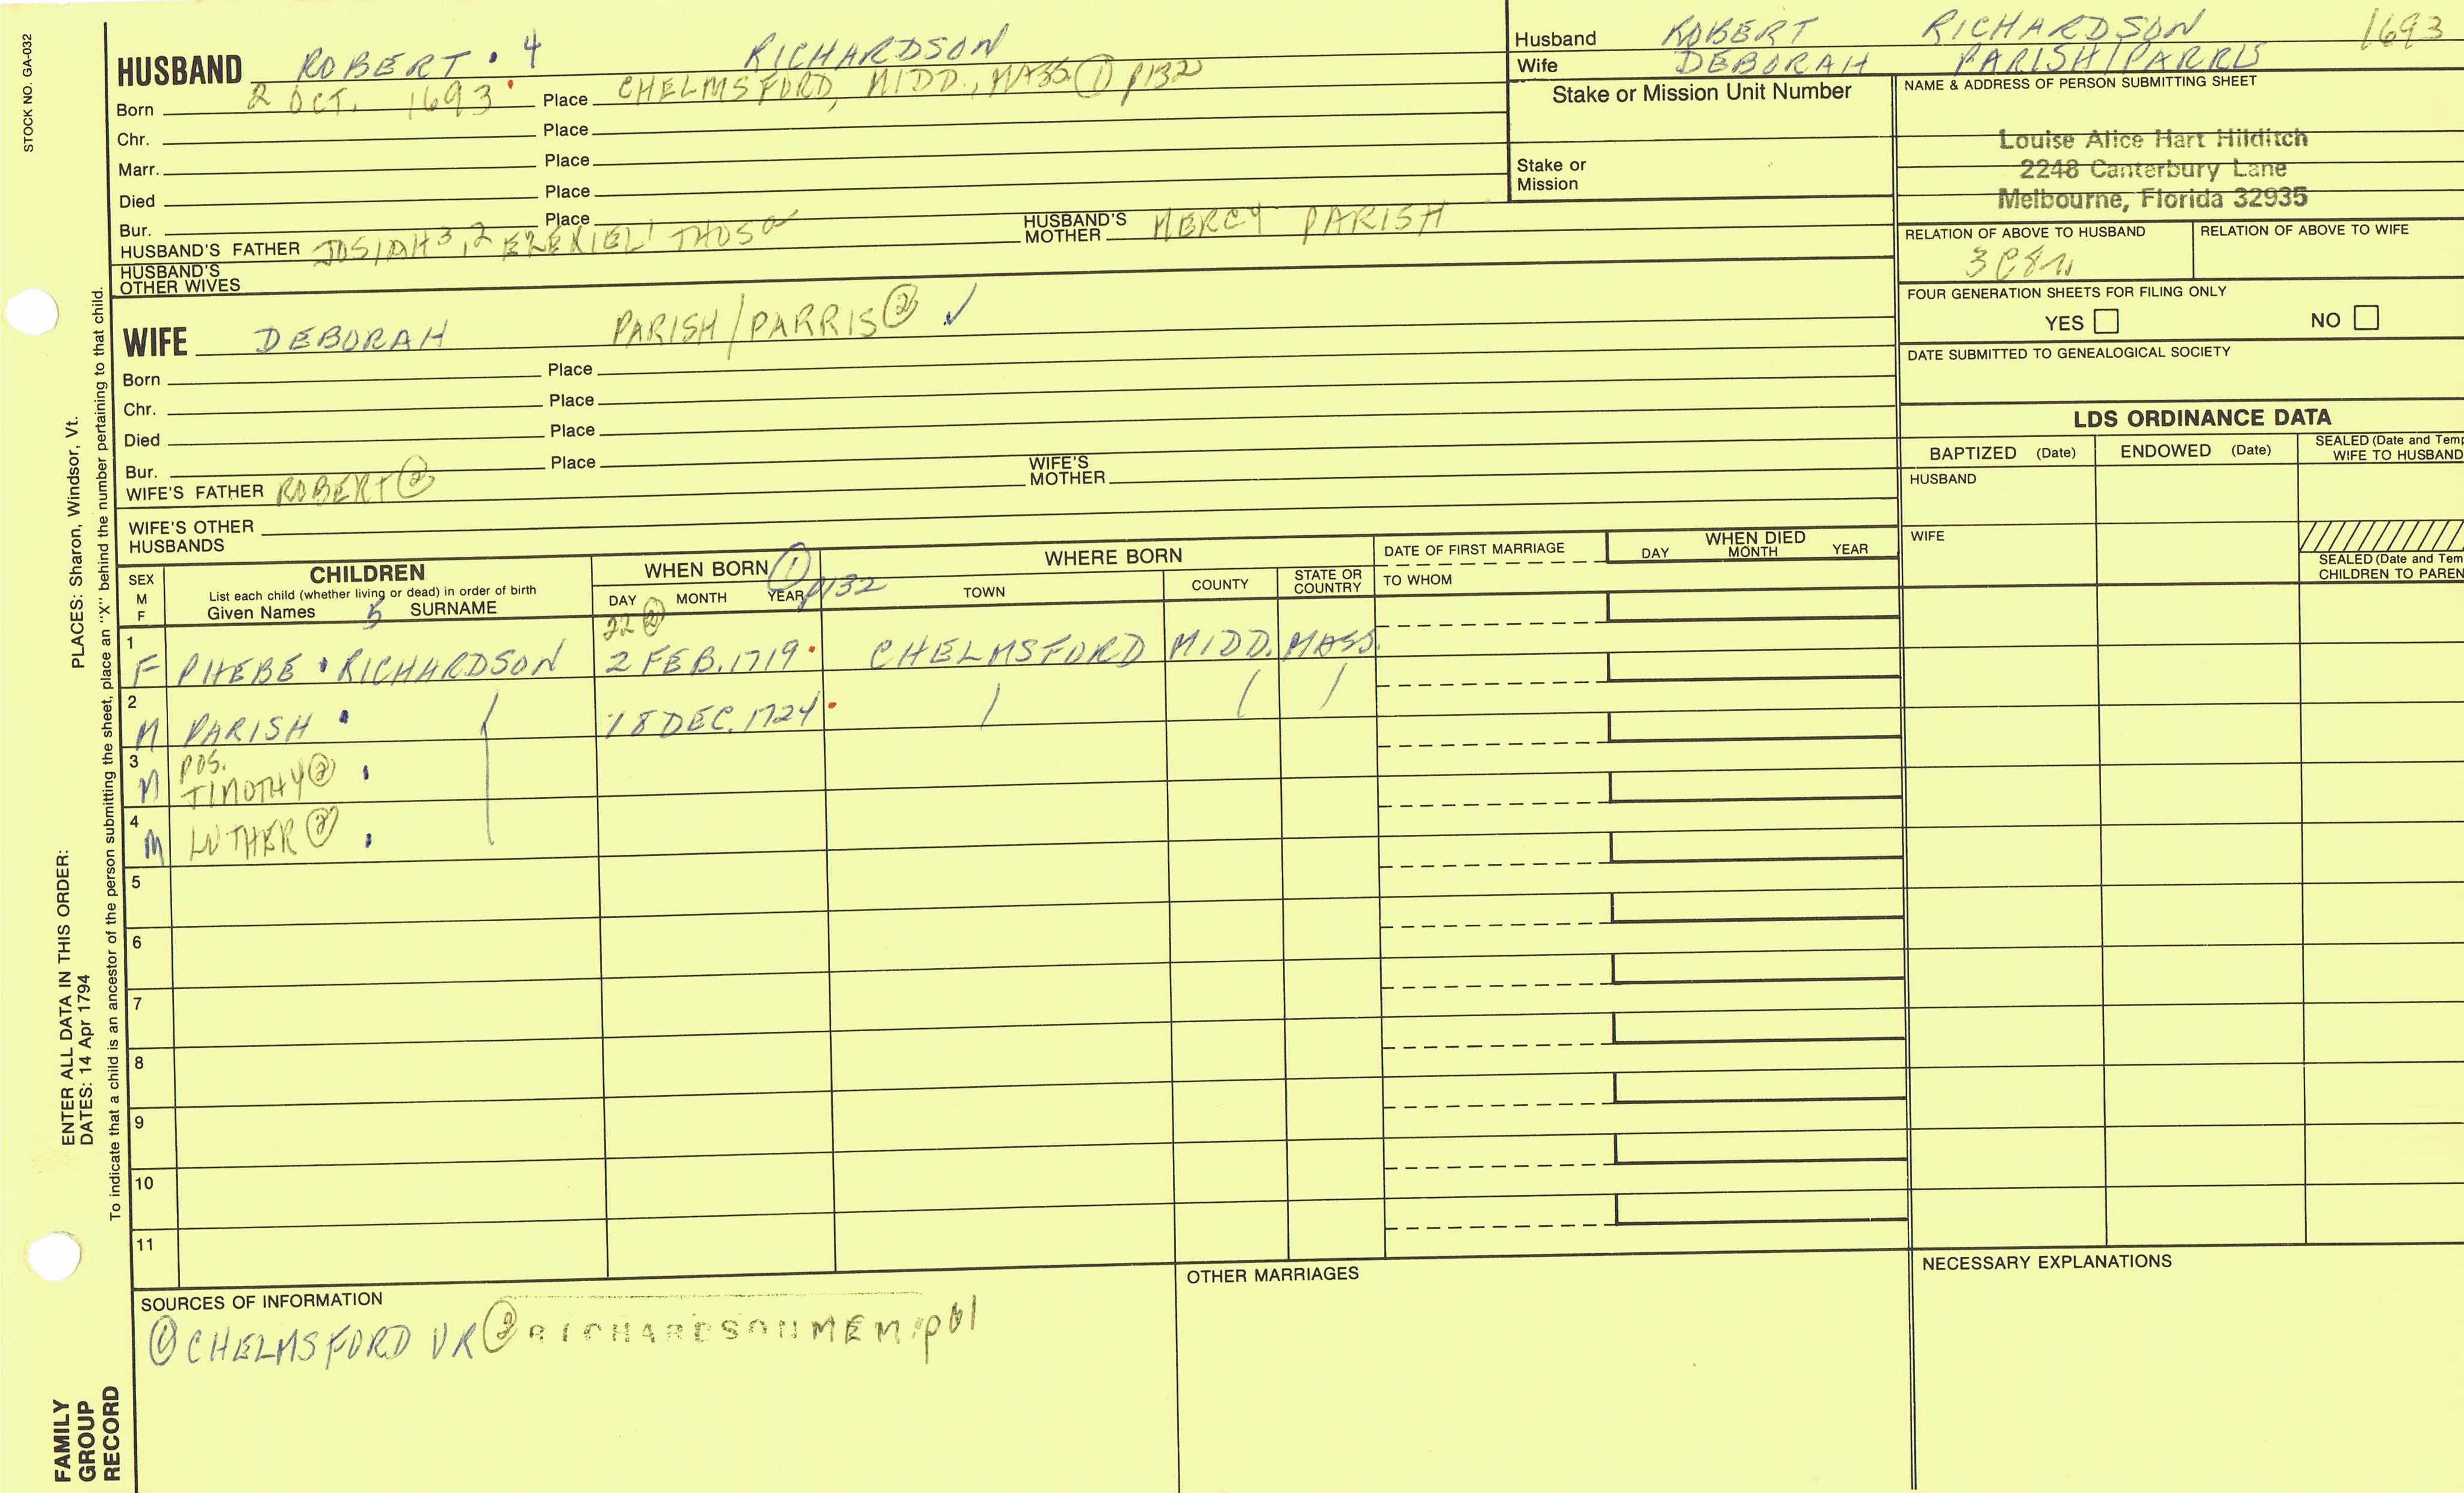 STOCK NO. GA-032
HUSBAND ROBERT · 4 RICHARDSON
Born 2 OCT. 1693 Place CHELMSFORD, MIDD., MASS ① p132
Chr. Place
Marr. Place
Died Place
Bur. Place
HUSBAND'S FATHER JOSIAH 3, 2 EZEKIEL 1 THOS HUSBAND'S MOTHER MERCY PARISH
HUSBAND'S OTHER WIVES
WIFE DEBORAH PARISH/PARRIS ② ✓
Born Place
Chr. Place
Died Place
Bur. Place
WIFE'S FATHER ROBERT ② WIFE'S MOTHER
WIFE'S OTHER HUSBANDS
Husband ROBERT RICHARDSON 1693
Wife DEBORAH PARISH/PARRIS
Stake or Mission Unit Number
Stake or Mission
NAME & ADDRESS OF PERSON SUBMITTING SHEET
Louise Alice Hart Hilditch
2248 Canterbury Lane
Melbourne, Florida 32935
RELATION OF ABOVE TO HUSBAND RELATION OF ABOVE TO WIFE
FOUR GENERATION SHEETS FOR FILING ONLY
YES NO
DATE SUBMITTED TO GENEALOGICAL SOCIETY
LDS ORDINANCE DATA
BAPTIZED (Date) ENDOWED (Date) SEALED (Date and Temp
WIFE TO HUSBAND
HUSBAND
WIFE
SEALED (Date and Tem
CHILDREN TO PAREN
SEX M F
CHILDREN
List each child (whether living or dead) in order of birth
Given Names 5 SURNAME
WHEN BORN ① p132
DAY MONTH YEAR
WHERE BORN
TOWN COUNTY STATE OR COUNTRY
DATE OF FIRST MARRIAGE
TO WHOM
WHEN DIED
DAY MONTH YEAR
22 ②
1 F PHEBE · RICHARDSON 2 FEB. 1719 · CHELMSFORD MIDD. MASS.
2 M PARISH · 18 DEC. 1724 ·
3 M POS. TIMOTHY ②
4 M LUTHER ②
5
6
7
8
9
10
11
SOURCES OF INFORMATION
① CHELMSFORD VR ② RICHARDSON MEM. p61
OTHER MARRIAGES
NECESSARY EXPLANATIONS
PLACES: Sharon, Windsor, Vt.
ENTER ALL DATA IN THIS ORDER:
DATES: 14 Apr 1794
To indicate that a child is an ancestor of the person submitting the sheet, place an "X" behind the number pertaining to that child.
FAMILY
GROUP
RECORD